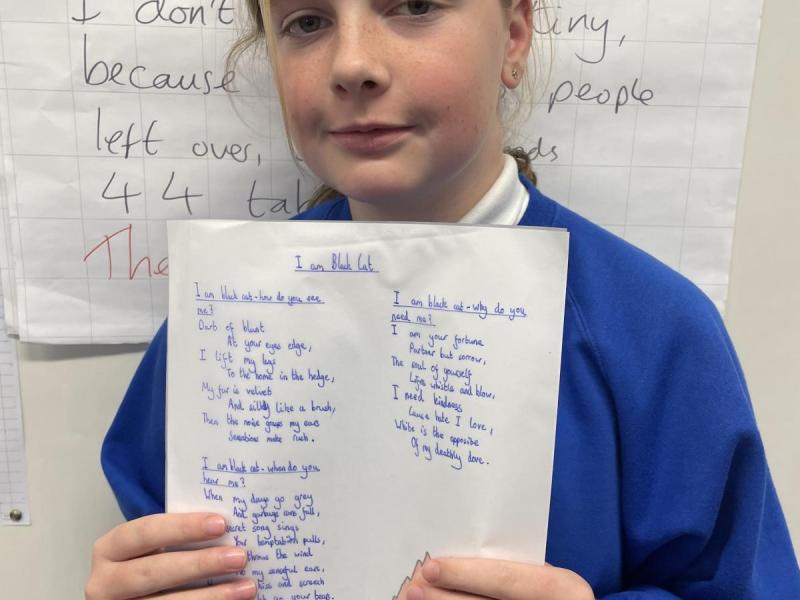 I don't tiny,
because people
left over, ds
44 tab
The
I am Black Cat
I am black cat - how do you see
me?
Darb of blunt
At your eyes edge,
I lift my legs
To the home in the hedge,
My fur is velvet
And silkly like a brush,
Then the noise grasps my ears
Sensations make rush.
I am black cat - when do you
hear me?
When my days go grey
And garbage cans fall,
secret song sings
Your temptation pulls,
the wind
my ears,
hiss and screech
on your bears.
I am black cat - why do you
need me?
I am your fortune
Partner but sorrow,
The soul of yourself
Lifes whistle and blow,
I need kindness
Cause hate I love,
White is the opposite
Of my deathly dove.